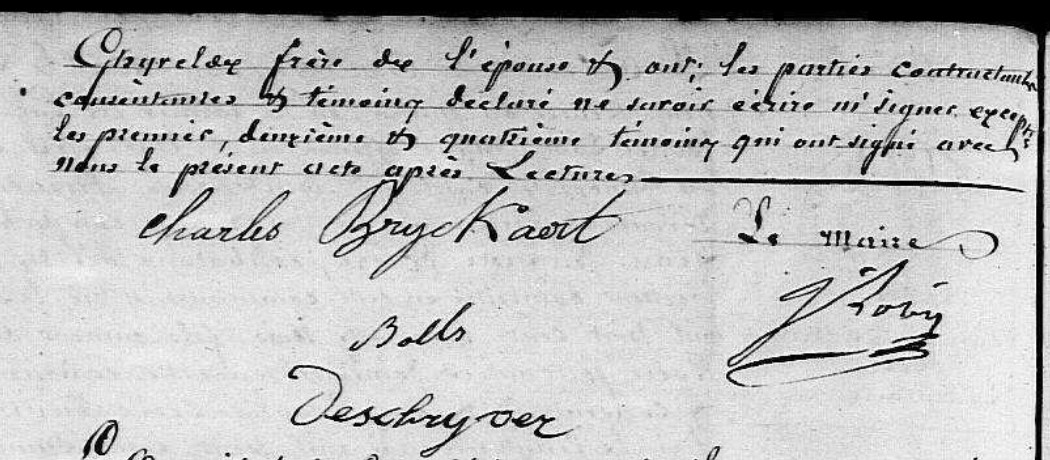 Ghyselaen frère de l'épouse & ont, les parties contractantes
consentantes & témoins déclaré ne savoir écrire ni signer excepté
les premier, deuxième & quatrième témoins qui ont signé avec
nous le présent acte après Lecture
Charles Bryckaert
Le Maire
Bolls
Deschryver